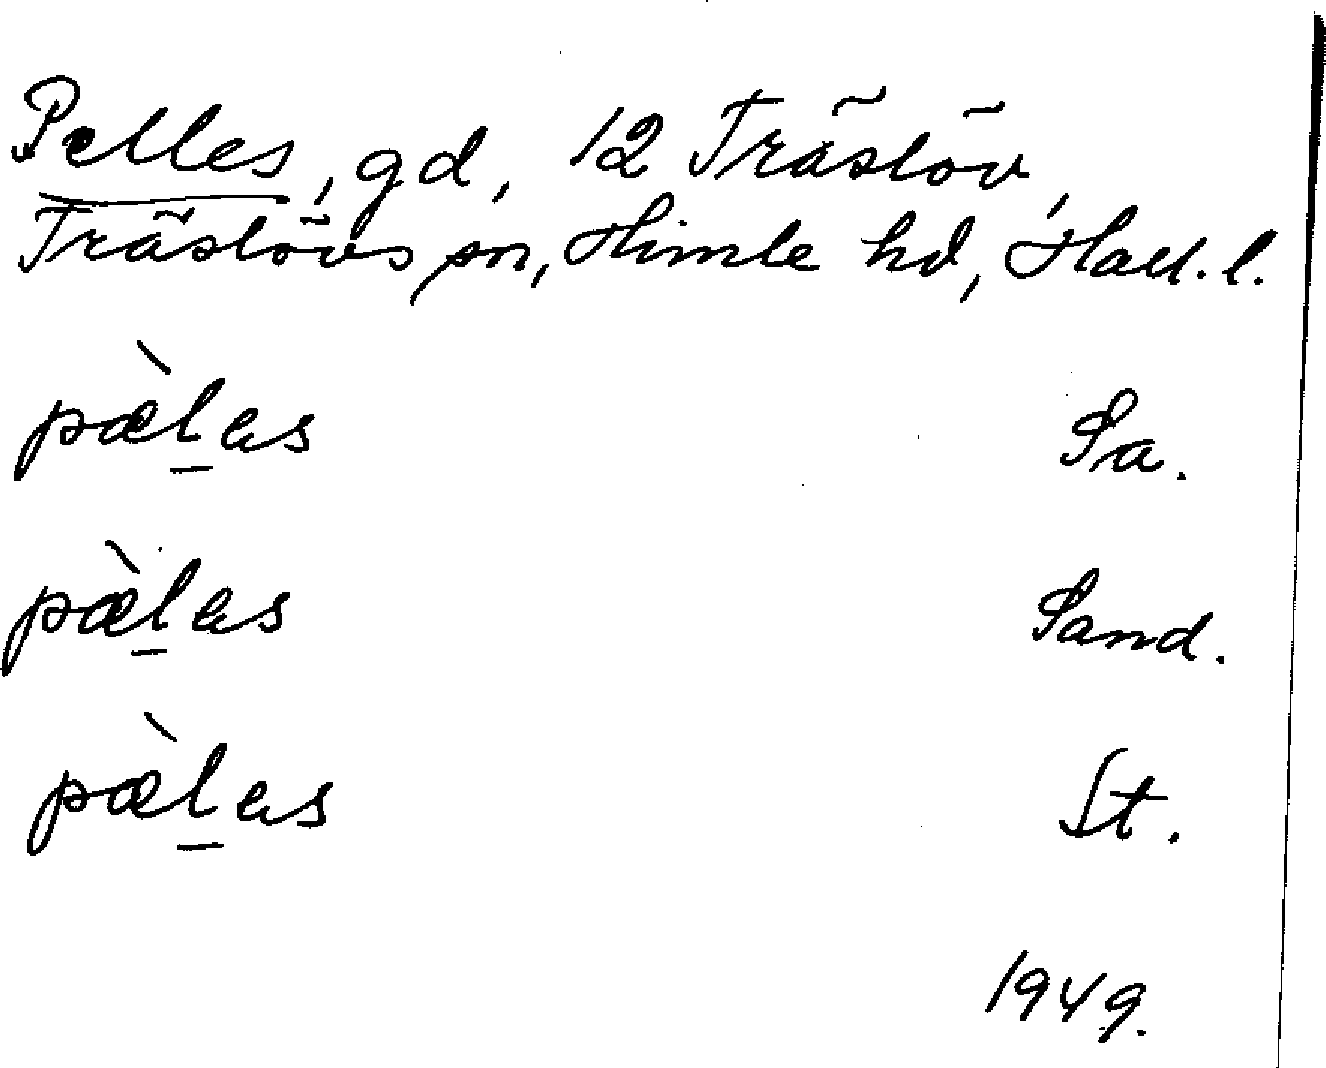 Pelles, gd, 12 Träslöv,
Träslövs sn, Himle hd, Hall. l.
pæ̀l̲as Sa.
pæ̀l̲as Sand.
pæ̀l̲as St.
1949.